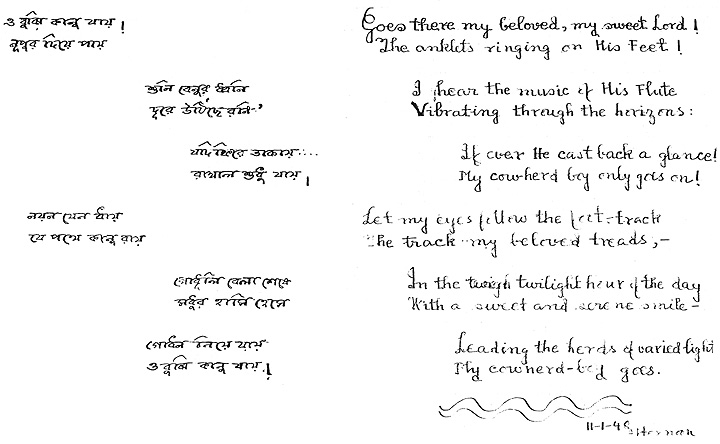 ও বুঝি কানু যায়!
নূপুর দিয়ে পায়
শুনি বেনুর ধ্বনি
দূরে উঠিছে রনি'
যদি ফিরে তাকায়....
রাখাল শুধু যায়!
নয়ন যেন ধায়
যে পথে কানু রায়
গোধূলি বেলা শেষে
মধুর হাসি হেসে
গোধন নিয়ে যায়
ও বুঝি কানু যায়!
Goes there my beloved, my sweet Lord!
The anklets ringing on His Feet!
I hear the music of His Flute
Vibrating through the horizons:
If ever He cast back a glance!
My cowherd boy only goes on!
Let my eyes follow the foot-track
The track my beloved treads,-
In the twilight hour of the day
With a sweet and serene smile-
Leading the herds of varied light
My cowherd-boy goes.
11-1-48